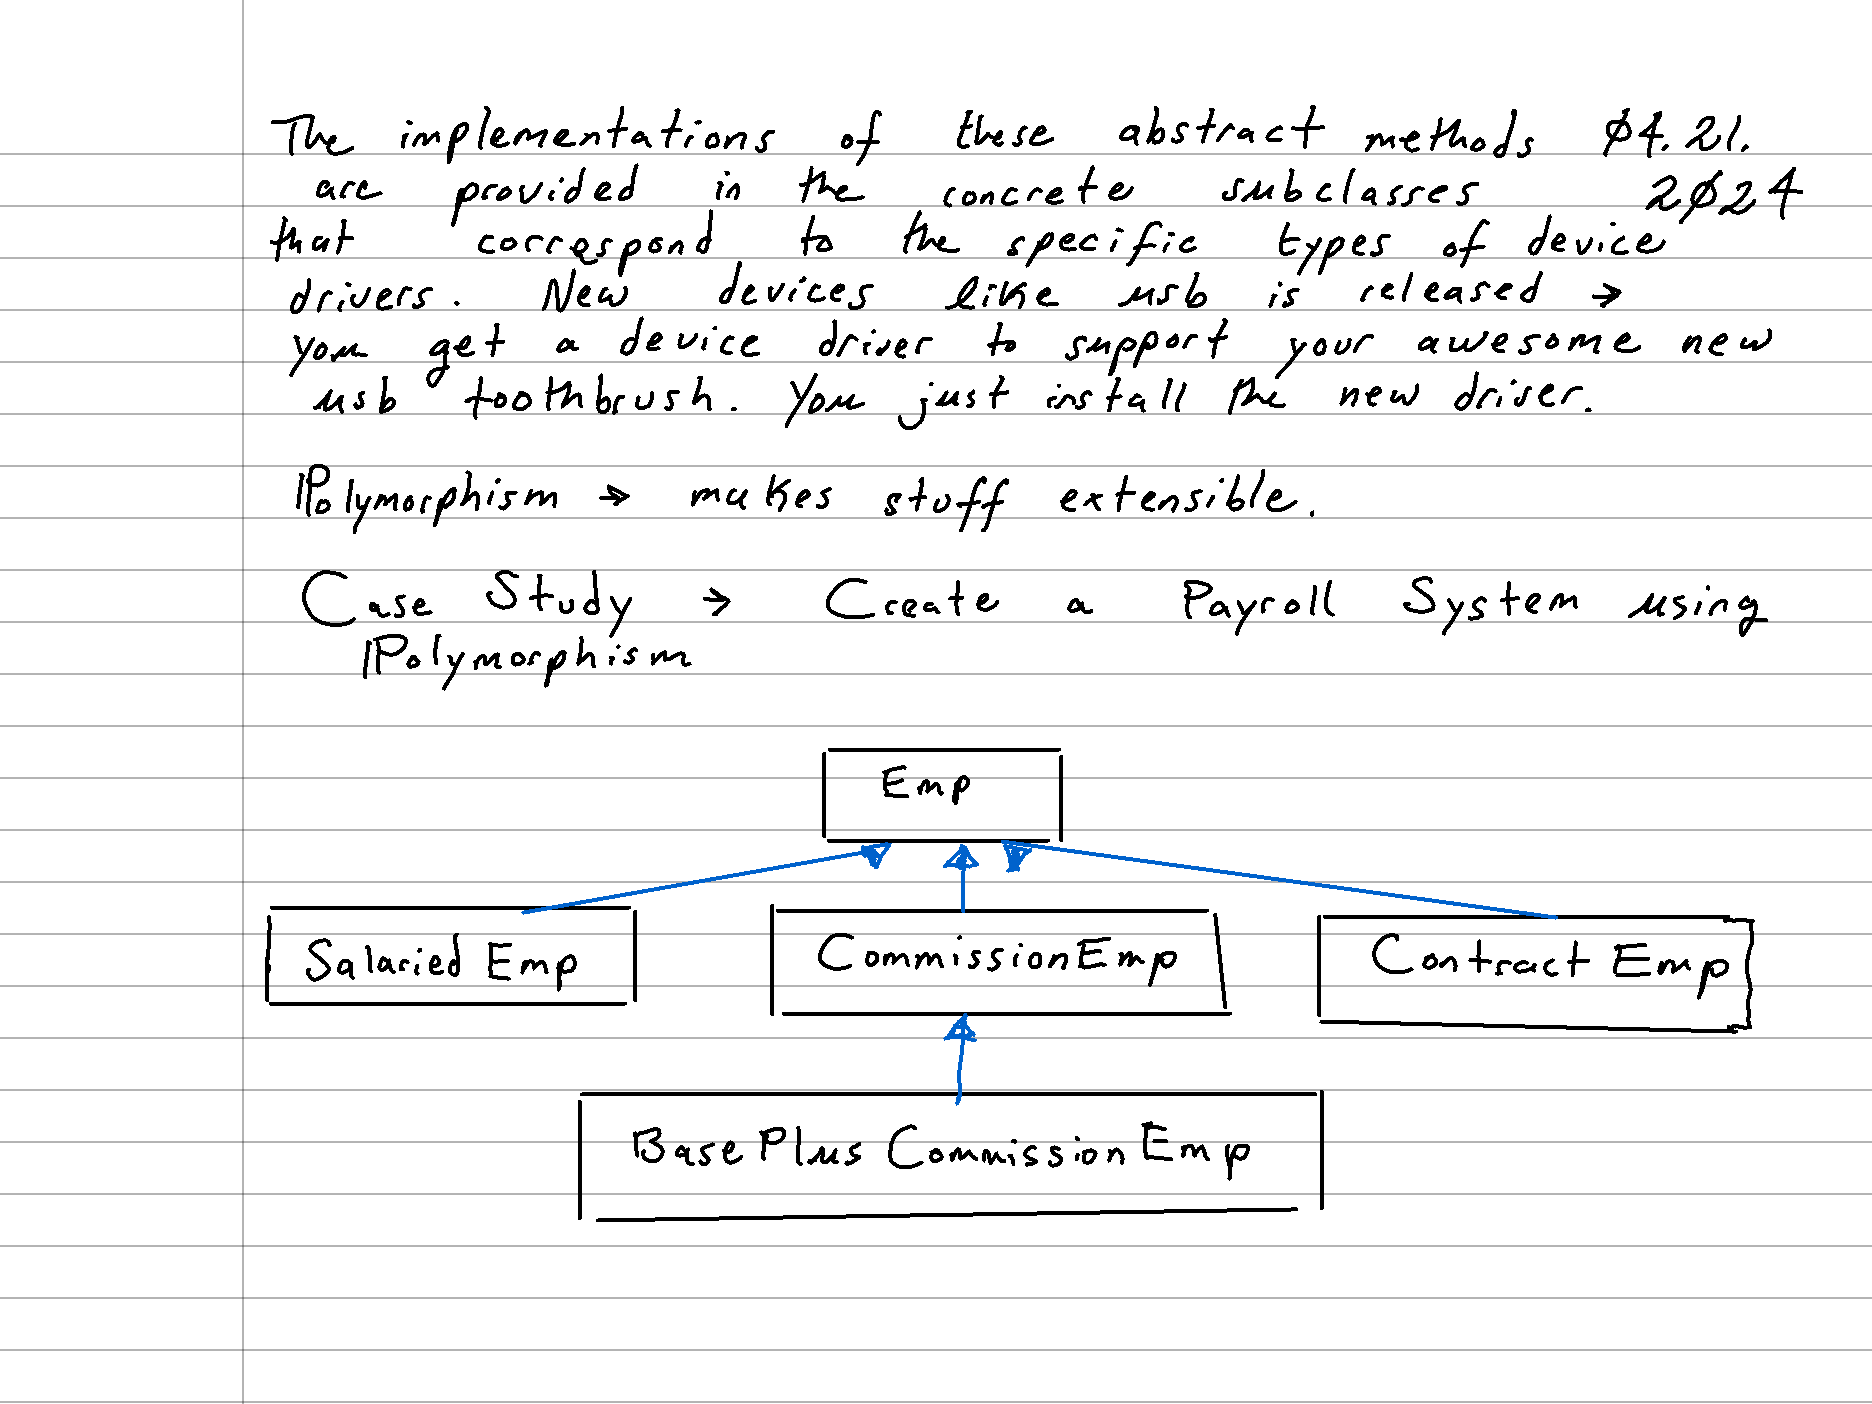 The implementations of these abstract methods 04.21.
are provided in the concrete subclasses 2024
that correspond to the specific types of device
drivers. New devices like usb is released →
you get a device driver to support your awesome new
usb toothbrush. You just install the new driver.
Polymorphism → makes stuff extensible.
Case Study → Create a Payroll System using
Polymorphism
Emp
Salaried Emp CommissionEmp Contract Emp
Base Plus Commission Emp